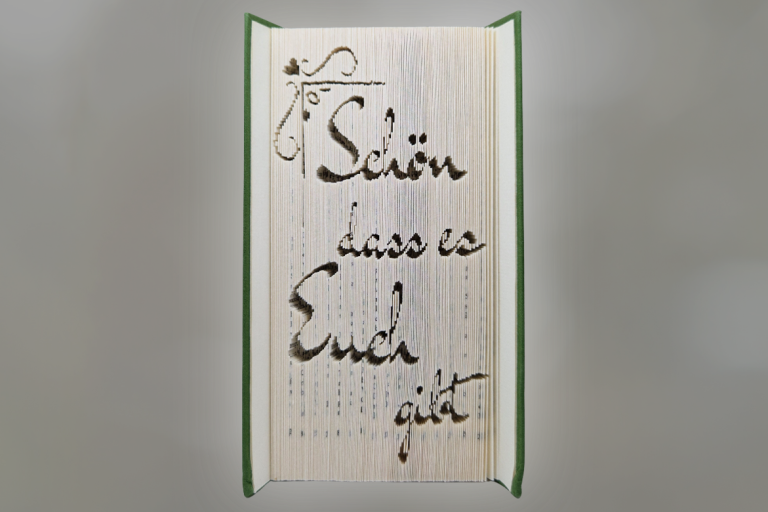 Schön
dass es
Euch
gibt